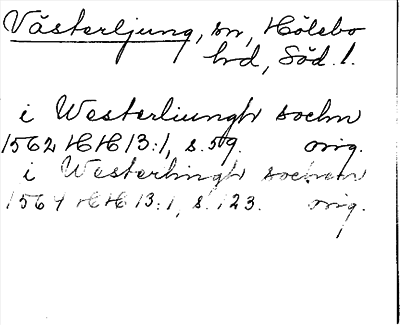 Västerljung, sn, Hölebo
hd, Söd. l.
i Westerliungh sochn
1562 HH 13:1, s. 59. orig.
i Westerlingh sochen
1564 HH 13:1, s. 123. orig.